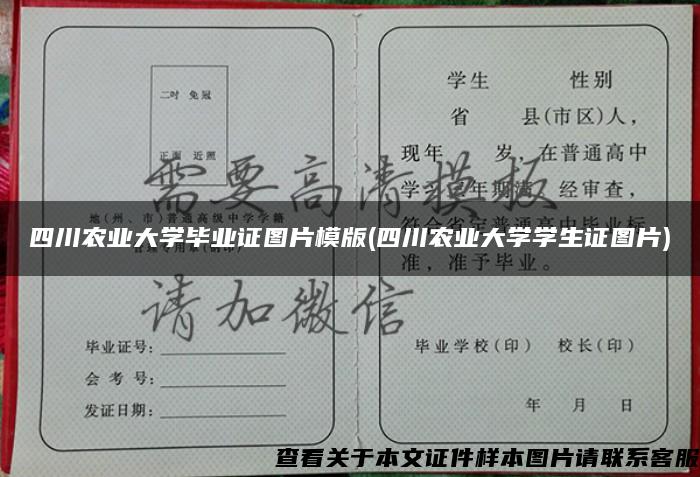 二吋 免冠
正面 近照
地(州、市)普通高级中学学籍
毕业证号:
会考号:
发证日期:
学生 性别
省 县(市区)人,
现年 岁,在普通高中
学习 年期满,经审查,
符合省定普通高中毕业标
准,准予毕业。
毕业学校(印) 校长(印)
年 月 日
需要高清模板
请加微信
四川农业大学毕业证图片模版(四川农业大学学生证图片)
查看关于本文证件样本图片请联系客服